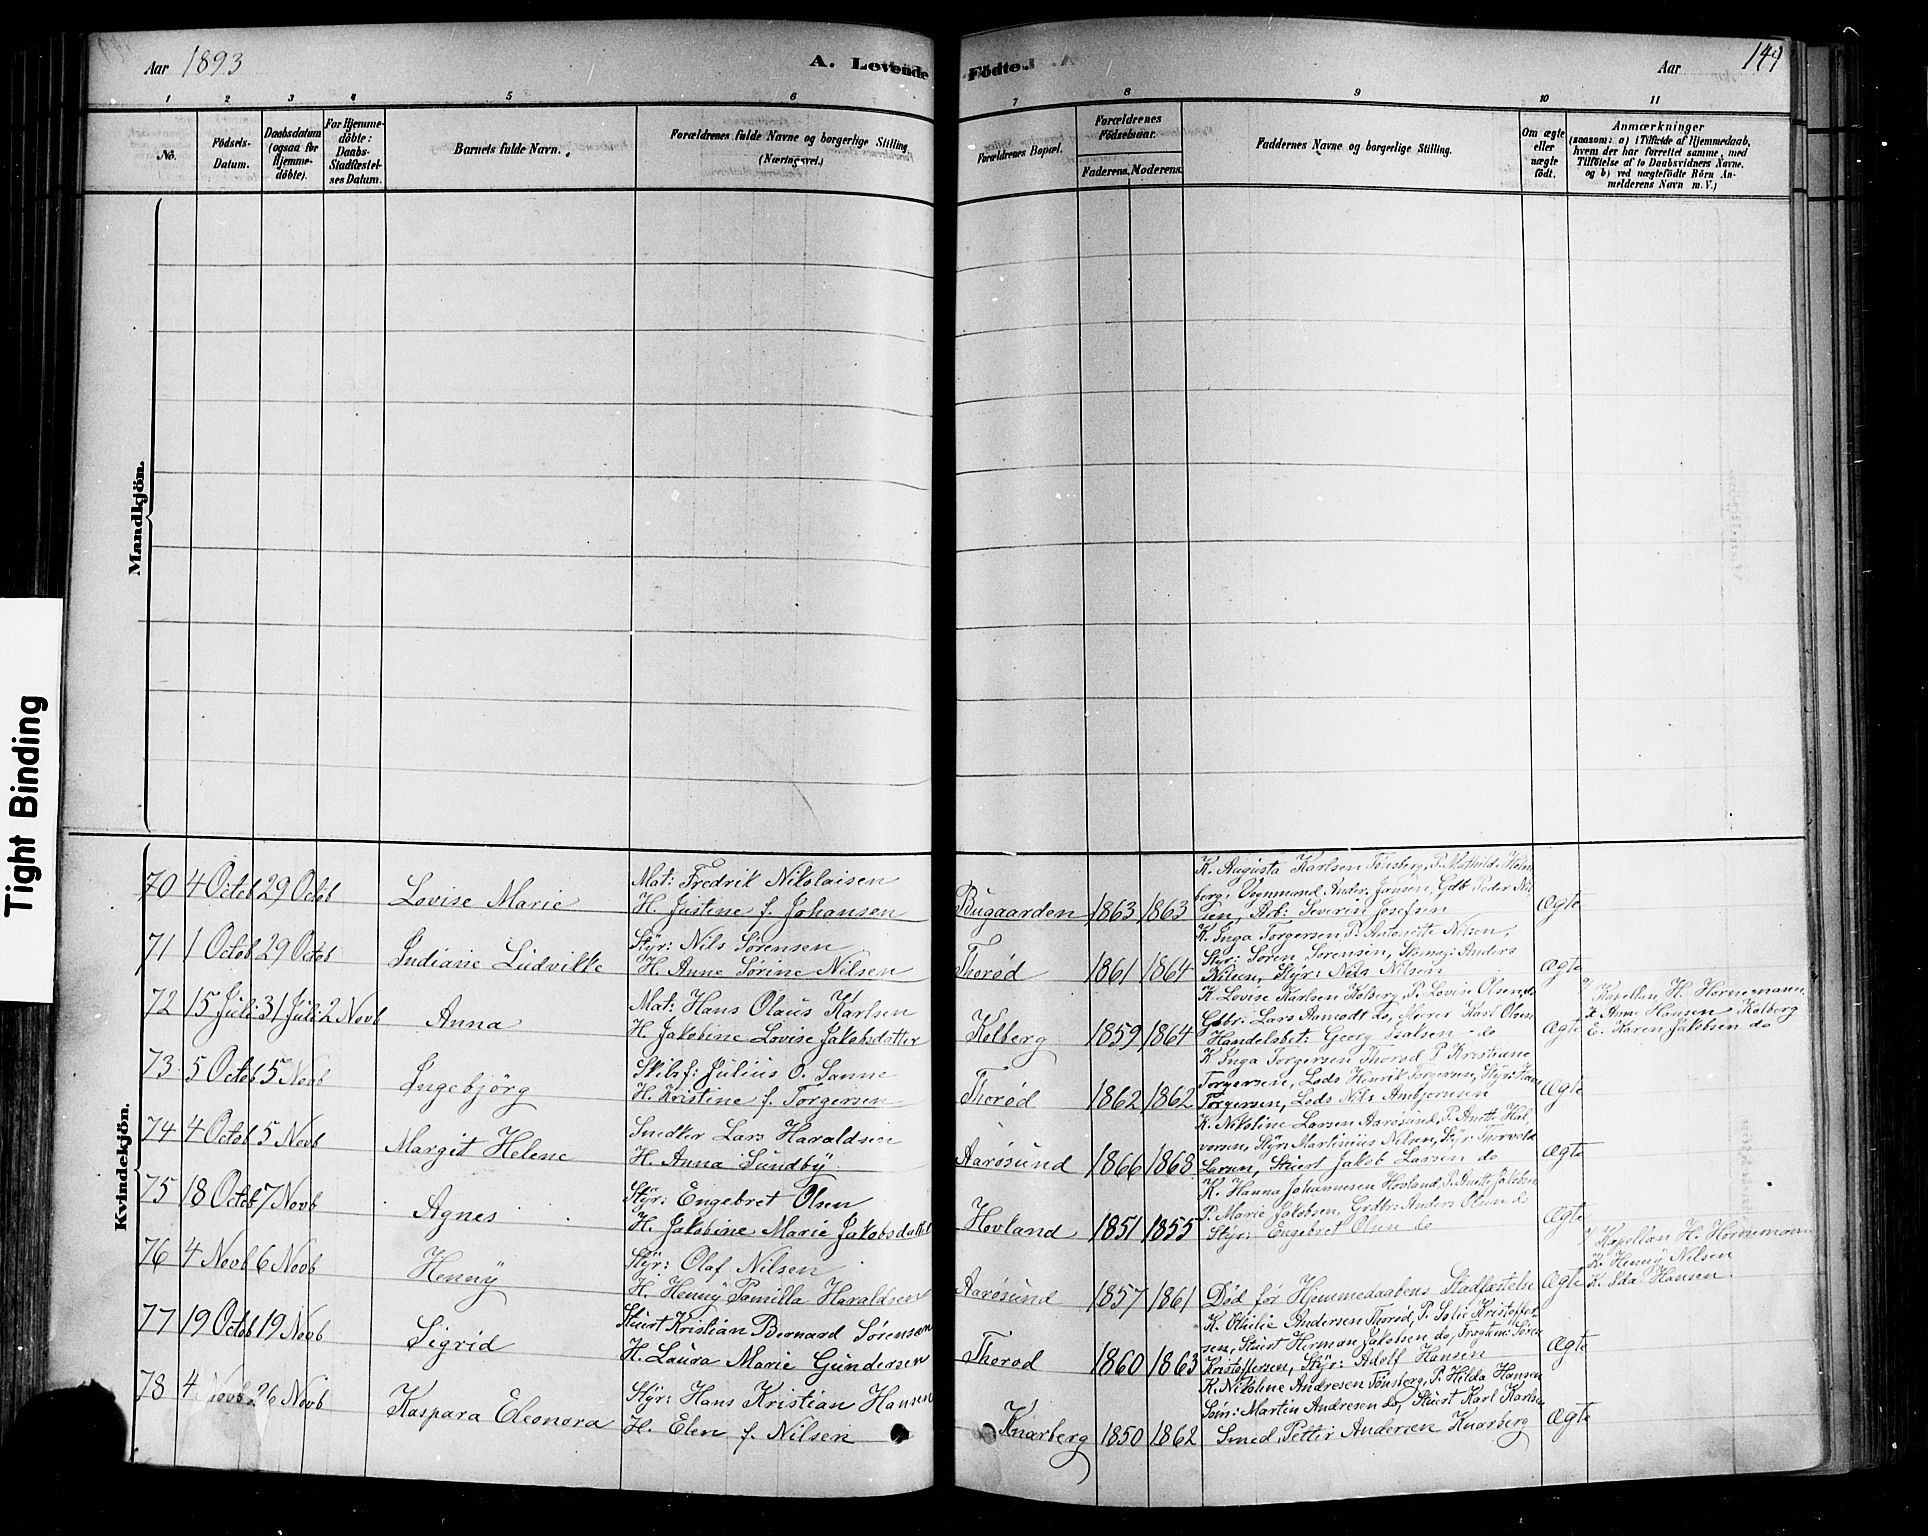 Aar 1893
A. Levende Födte.
Aar
149
1 2 3 4 5 6 7 8 9 10 11
No.
Födsels-Datum.
Daabsdatum (ogsaa for Hjemme-döbte).
For Hjemme-döbte: Daabs-Stadfæstel-ses Datum.
Barnets fulde Navn.
Forældrenes fulde Navne og borgerlige Stilling (Næringsvei.)
Forældrenes Bopæl.
Forældrenes Födselsaar.
Faderens. Moderens.
Faddernes Navne og borgerlige Stilling.
Om ægte eller uægte födt.
Anmærkninger
(saasom: a) i Tilfælde af Hjemmedaab, hvem der har forrettet samme, med Tilföielse af to Daabsvidners Navne. og b) ved uægtefödte Börn An-melderens Navn m. V.)
Mandkjön.
Tight Binding
Kvindekjön.
70 4 Octob 29 Octob Lovise Marie
Mat: Fredrik Nikolaisen
H. Justine f. Johansen
Bugaarden 1863 1863
K. Augusta Karlsen Tönsberg, P. Mathilde Holm
berg, Ungmand Ander. Jansen, Gdb Peder Nil
sen, Arb: Severin Josefsen
Ægte
71 1 Octob 29 Octob Indiane Ludvikke
Styr: Nils Sörensen
H. Anne Sörine Nilsen
Thoröd 1861 1864
K. Inga Torgersen P. Antonette Nilsen,
Styr: Sören Sörensen, Skomag: Anders
Nilsen, Styr: Nils Nilsen
Ægte
72 15 Juli 31 Juli 2 Novb Anna
Mat: Hans Olaus Karlsen
H. Jakobine Lovise Jakobsdatter
Kolberg 1859 1864
K. Lovise Karlsen Kolberg, P. Lovise Olsen do
Gdbr: Lars Anmodt do, Murer Karl Olsen
Handelsbet: Georg Isaksen do
Ægte
Kapellan H. Hornemann
K. Anne Hansen Kolberg
E. Karen Jakobsen do
73 5 Octob 5 Novb Ingebjörg
Skibsf: Julius O. Sanne
H. Kristine f. Torgersen
Thoröd 1862 1862
K Inga Torgersen Thoröd P Kristiane
Torgersen, Lods Henrik Torgersen, Styr: Hans
Torgersen, Lods Nils Anbjörnsen
Ægte
74 4 Octob 5 Novb Margit Helene
Snedker Lars Haraldsen
H. Anna Sundby
Aarösund 1866 1868
K. Nikoline Larsen Aarösund, P. Anette Hal
vorsen, Styr: Martinius Nilsen, Styr: Thorvald
Larsen, Stuert Jakob Larsen do
Ægte
75 18 Octob 7 Novb Agnes
Styr: Engebret Olsen
H. Jakobine Marie Jakobsdatt
Hovland 1851 1855
K. Hanna Johannesen Hovland, P. Anette Jakobsen
P. Marie Jakobsen, Grdbr: Anders Olsen do
Styr: Engebret Olsen do
Ægte
76 4 Novb 6 Novb Henny
Styr: Olaf Nilsen
H. Henny Pamilla Haraldsen
Aarösund 1857 1861
Död för Hjemmedaabens Stadfæstelse
Ægte
Kapellan H. Hornemann
K. Henny Nilsen
K. Ida Hansen
77 19 Octob 19 Novb Sigrid
Stuert Kristian Bernard Sörensen
H. Laura Marie Gundersen
Thorod 1860 1863
K. Othilie Andersen Thoröd, P. Sofie Kristoffer
sen, Stuert Herman Jakobsen do, Fragtem: Sören
Kristoffersen, Styr: Adolf Hansen
Ægte
78 4 Novb 26 Novb Kaspara Eleonora
Styr: Hans Kristian Hansen
H. Elen f. Nilsen
Knarberg 1850 1862
K. Nikoline Andresen Tönsberg, P. Hilda Hansen
Söm: Martin Andresen do, Stuert Karl Karlsen
Smed Petter Andersen Knarberg
Ægte